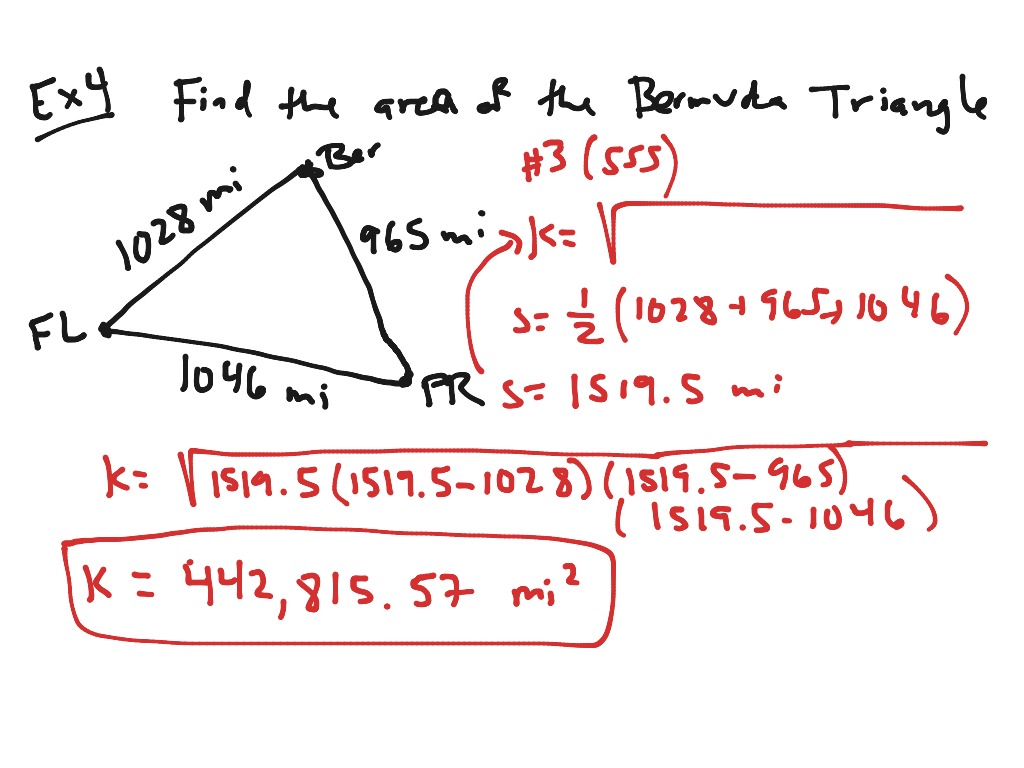 Ex4 Find the area of the Bermuda Triangle
Ber
#3 (SSS)
1028 mi
965 mi
K= √
FL
s= 1/2 (1028+965+1046)
1046 mi
PR
s= 1519.5 mi
K= √1519.5(1519.5-1028)(1519.5-965)
(1519.5-1046)
K = 442,815.57 mi²